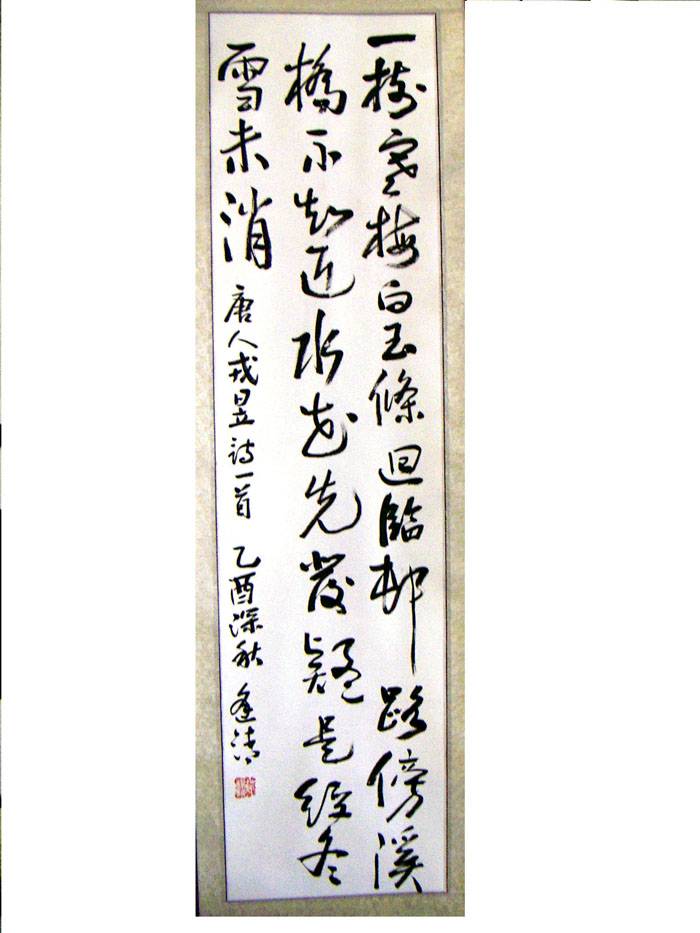 一樹寒梅白玉條迴臨邨路傍溪
橋不知近水花先發疑是經冬
雪未消 唐人戎昱詩一首 乙酉深秋 逢